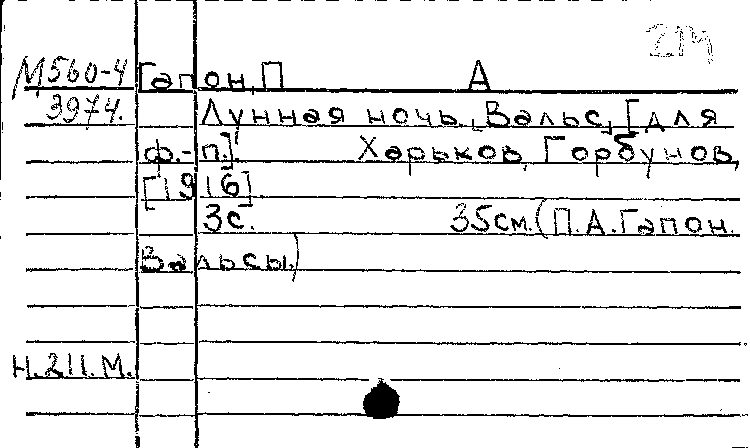 214
М560-4 Гапон, П А
3974. Лунная ночь. Вальс, [для
ф.-п.]. Харьков, Горбунов,
[1916].
3с. 35см. (П.А.Гапон.
Вальсы.)
Н.211.М.